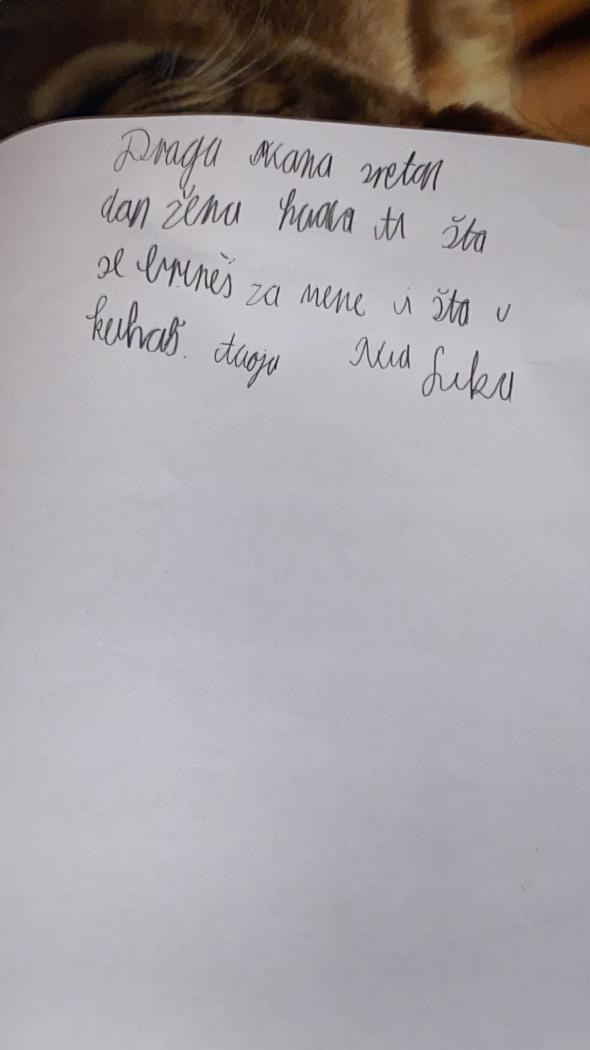 Draga mama sretan
dan žena hvala ti šta
se brineš za mene i šta
kuhaš. tvoja Luka